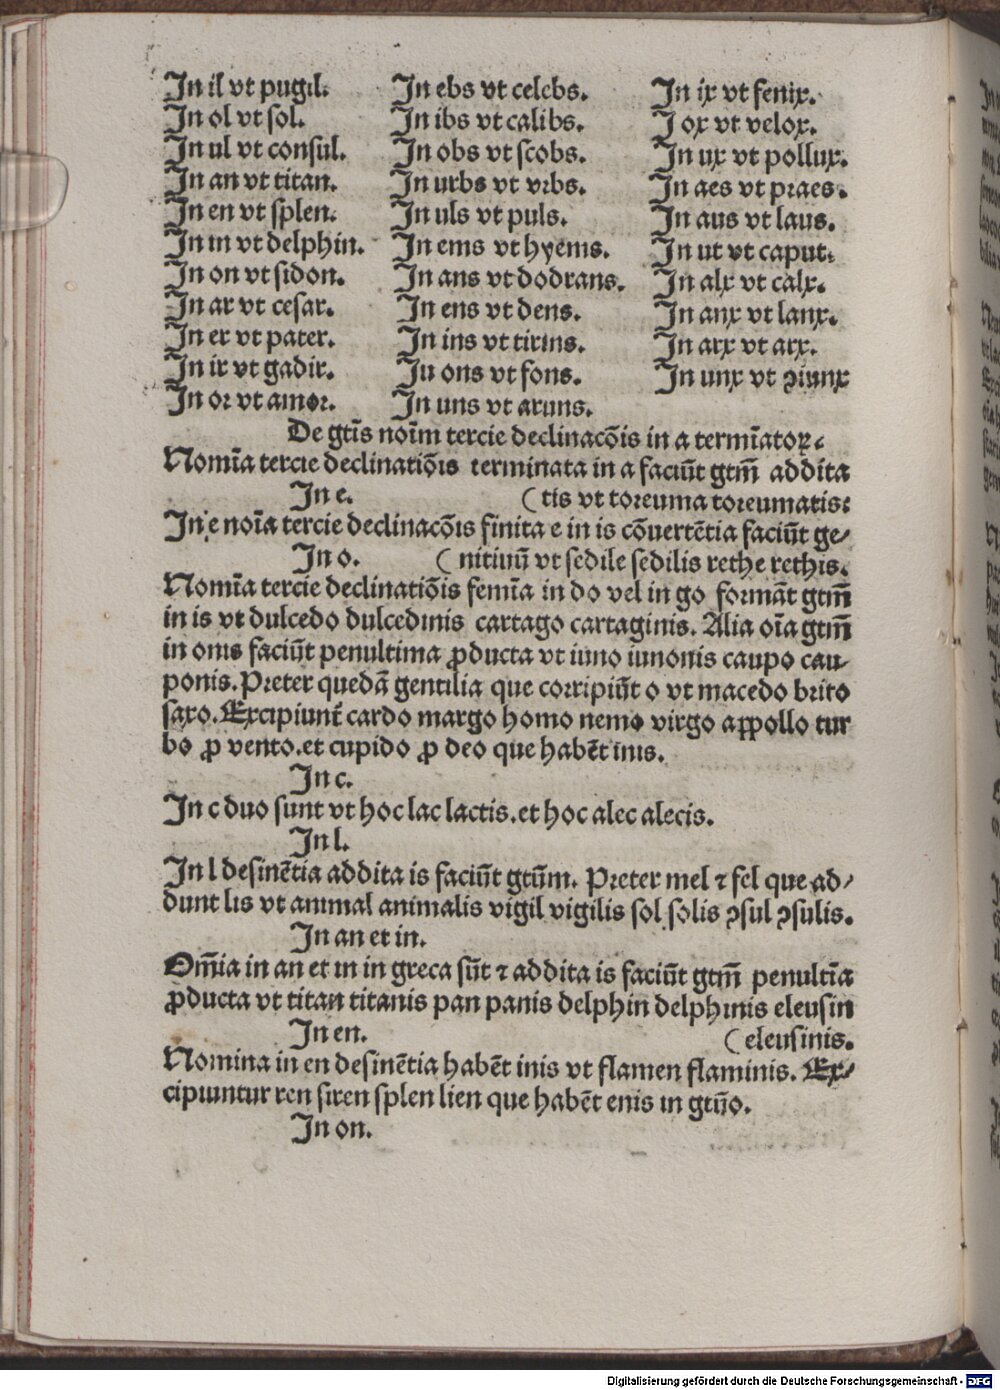 In il vt pugil.
In ol vt sol.
In ul vt consul.
In an vt titan.
In en vt splen.
In in vt delphin.
In on vt sidon.
In ar vt cesar.
In er vt pater.
In ir vt gadir.
In or vt amor.
In ebs vt celebs.
In ibs vt calibs.
In obs vt scobs.
In urbs vt vrbs.
In uls vt puls.
In ems vt hyems.
In ans vt dodrans.
In ens vt dens.
In ins vt tirins.
Iu ons vt fons.
In uns vt aruns.
In ix vt fenix.
I ox vt velox.
In ux vt pollux.
In aes vt praes.
In aus vt laus.
In ut vt caput.
In alx vt calx.
In anx vt lanx.
In arx vt arx.
In unx vt ꝯiunx
De gtĩs noĩm tercie declinacõis in a termĩatoꝝ.
Nomĩa tercie declinatiõis terminata in a faciũt gtm̃ addita
In e. (tis vt toreuma toreumatis:
In e noĩa tercie declinacõis finita e in is cõuertẽtia faciũt ge⸗
In o. (nitiuũ vt sedile sedilis rethe rethis.
Nomĩa tercie declinatiõis femĩa in do vel in go formãt gtm̃
in is vt dulcedo dulcedinis cartago cartaginis. Alia oĩa gtm̃
in onis faciũt penultima ꝓducta vt iuno iunonis caupo cau⸗
ponis. Preter quedã gentilia que corripiũt o vt macedo brito
saxo. Excipiunt̃ cardo margo homo nemo virgo aꝑpollo tur
bo ꝓ vento. et cupido ꝓ deo que habẽt inis.
In c.
In c duo sunt vt hoc lac lactis. et hoc alec alecis.
In l.
In l desinẽtia addita is faciũt gtũm. Preter mel ⁊ fel que ad⸗
dunt lis vt animal animalis vigil vigilis sol solis ꝯsul ꝯsulis.
In an et in.
Om̃ia in an et in in greca sũt ⁊ addita is faciũt gtm̃ penultĩa
ꝓducta vt titan titanis pan panis delphin delphinis eleusin
In en. (eleusinis.
Nomina in en desinẽtia habẽt inis vt flamen flaminis. Ex⸗
cipiuntur ren siren splen lien que habẽt enis in gtĩo.
In on.
Digitalisierung gefördert durch die Deutsche Forschungsgemeinschaft - DFG